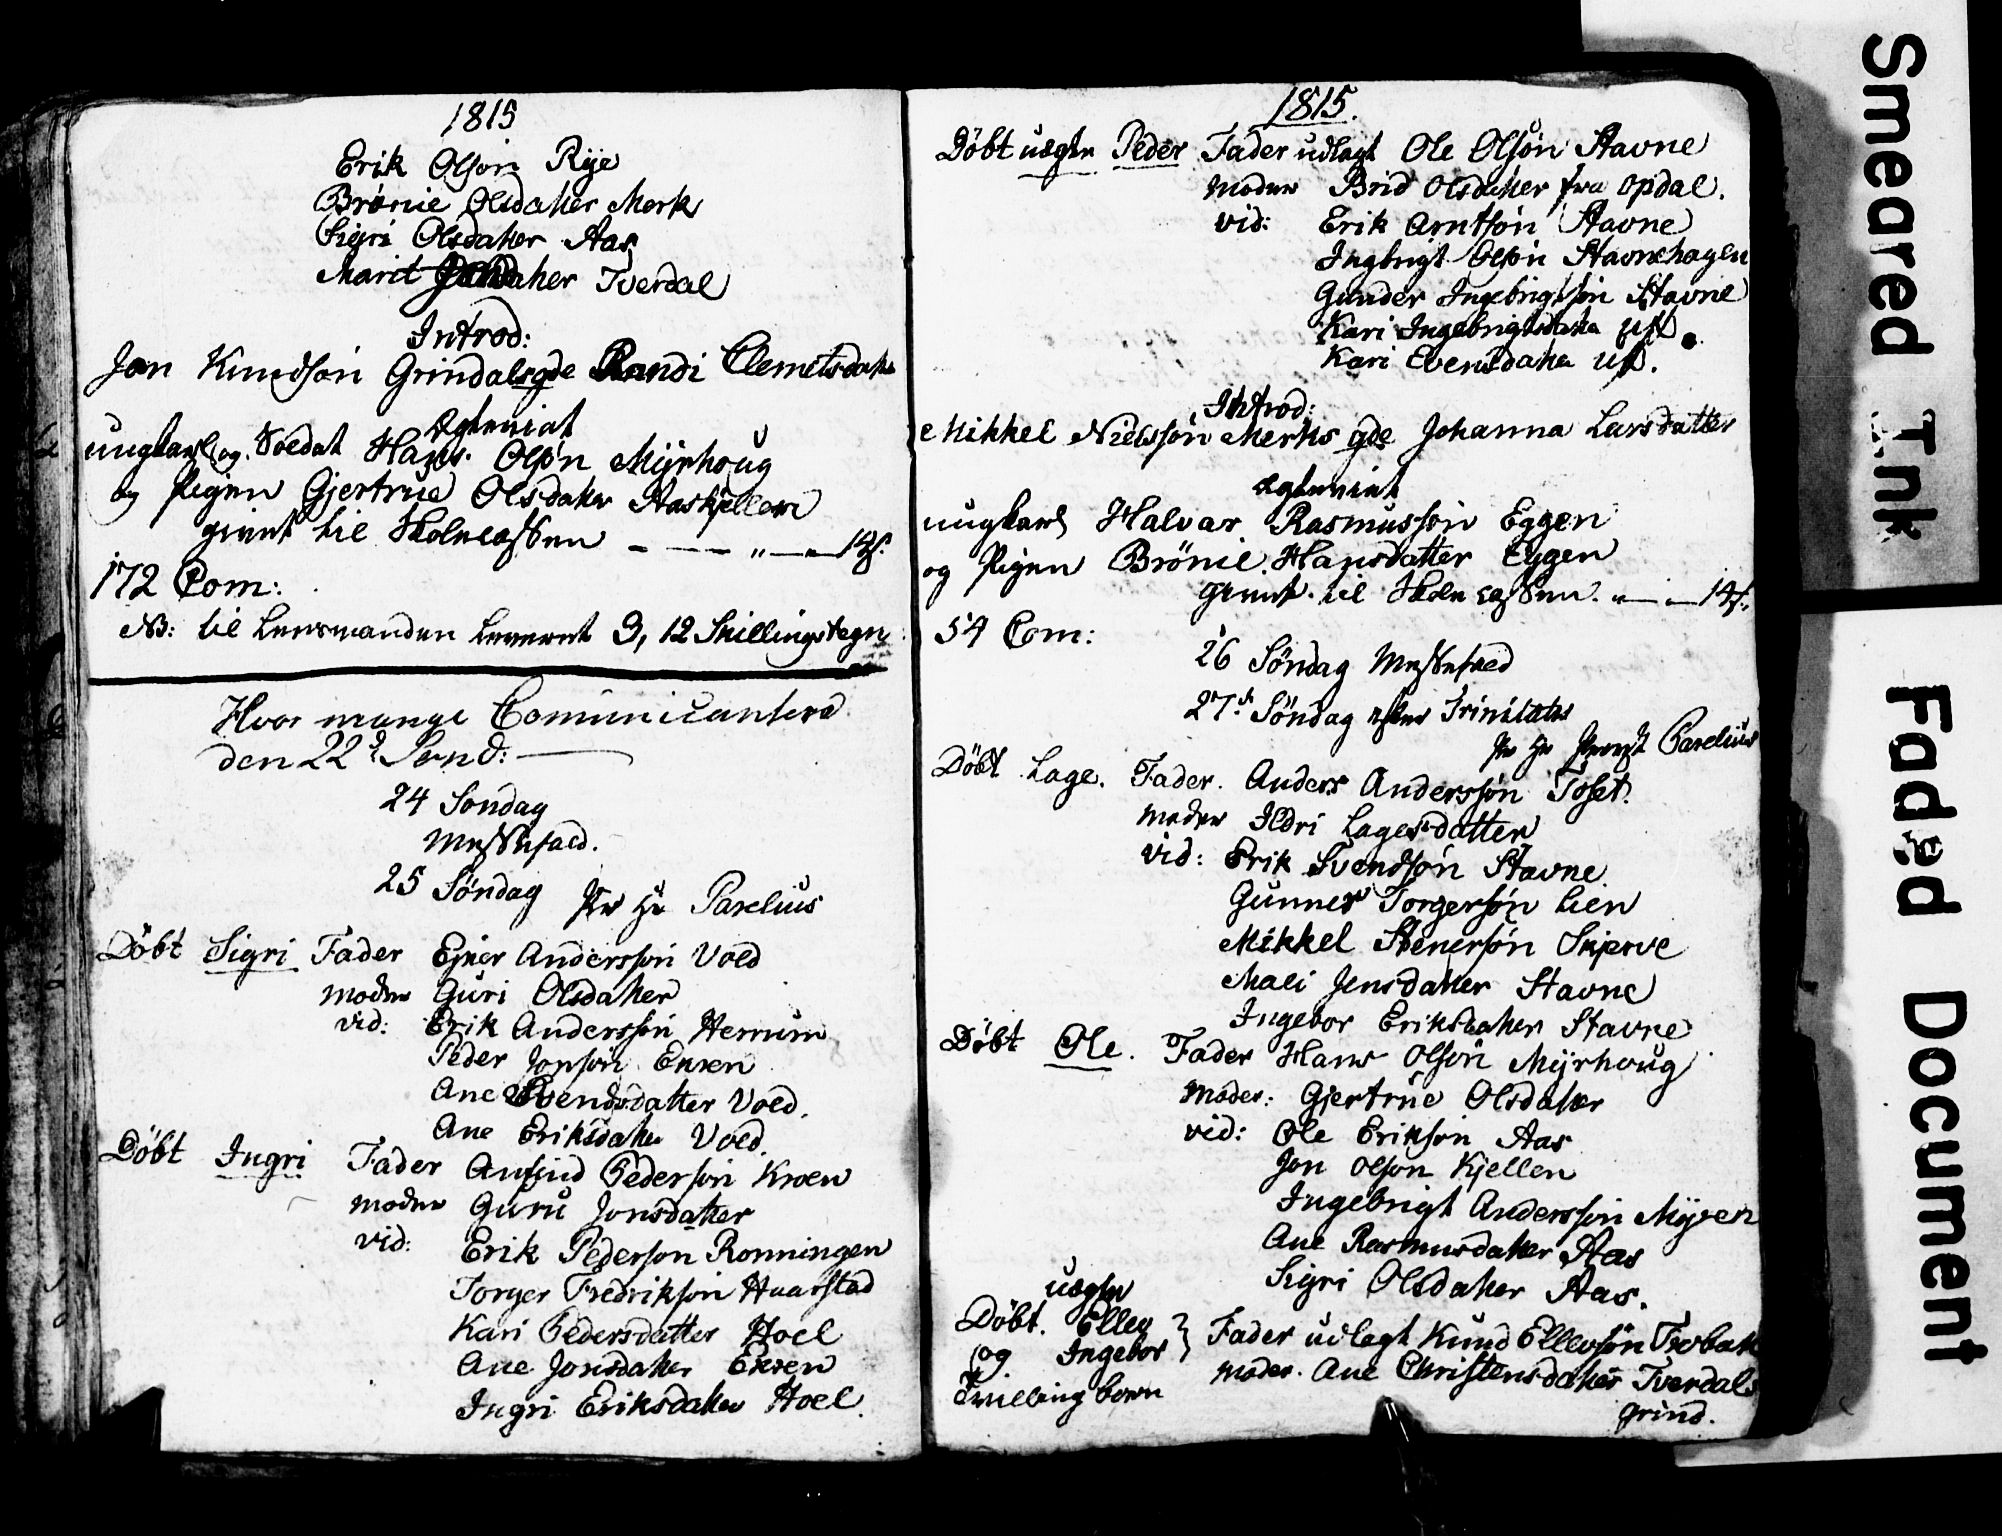 1815
Erik Olsøn Rije
Brønie Olsdatter Merk
Sigri Olsdatter Aas
Marit datter Tverdal
Introd:
Jon Knudsøn Grindalsgde Randi Clemetsdatter
Ægteviet
ungkarl og Soldat Hans Olsøn Myrhoug
og Pigen Gjertrue Olsdatter Aaskjellen
givet til Skolecassen - — — „ — „ — 12ß.
172 Com:
NB: til Lensmanden leveret 3, 12 Skillingstegn
Hvor mange Comunicantere
den 22d Sønd: —
24 Søndag
Messefald.
25 Søndag Pr Hr Parelius
Døbt Sigri Fader Ejner Anderssøn Vold
moder Guri Olsdatter
vid: Erik Anderssøn Herrum
Peder Jonsøn Engen
Ane Svendsdatter Vold.
Ane Eriksdatter Vold.
Døbt Ingri Fader Anfind Pedersøn Kroen
moder Guru Jonsdatter
vid: Erik Pedersøn Rønningen
Torger Fredriksøn Haarstad
Kari Pedersdatter Hoel
Ane Jonsdatter Engen
Ingri Eriksdatter Hoel.
1815.
Døbt uægte Peder Fader udlagt Ole Olsøn Stavne
moder Brid Olsdatter fra Opdal.
vid: Erik Arntsøn Stavne
Ingbrigt Olsøn Stavnehagen
Gunder Ingebrigtsøn Stavne
Kari Ingebrigtsdatter ust.
Kari Evensdatter ust.
Introd:
Mikkel Nielssøn Merks gde Johanna Larsdatter
Ægteviet
ungkarl Halvar Rasmussøn Eggen
og Pigen Brønie Hansdatter Eggen
givet til Skolecassen. „ — „ — 12ß.
54 Com:
26 Søndag Messefald
27d Søndag efter Trinitatis
Pr Hr Provst Parelius
Døbt Lage. Fader. Anders Anderssøn Toset.
moder Ildri Lagesdatter
vid: Erik Svendsøn Stavne
Gunner Torgersøn Lien
Mikkel Stenersøn Skjerve
Mali Jensdatter Stavne
Ingebor Eriksdatter Stavne
Døbt Ole. Fader Hans Olsøn Myrhoug
Moder: Gjertrue Olsdatter
vid: Ole Eriksøn Aas
Jon Olsøn Kjellen
Ingebrigt Anderssøn Myren
Ane Rasmusdatter Aas
Sigri Olsdatter Aas.
uægte
Døbt. Ellev } Fader udlagt Knud Ellevsøn Trobak
og Ingebor } Moder. Ane Christensdatter Tverdals
Tvilling børn grind.
Smeared Ink
Faded Document